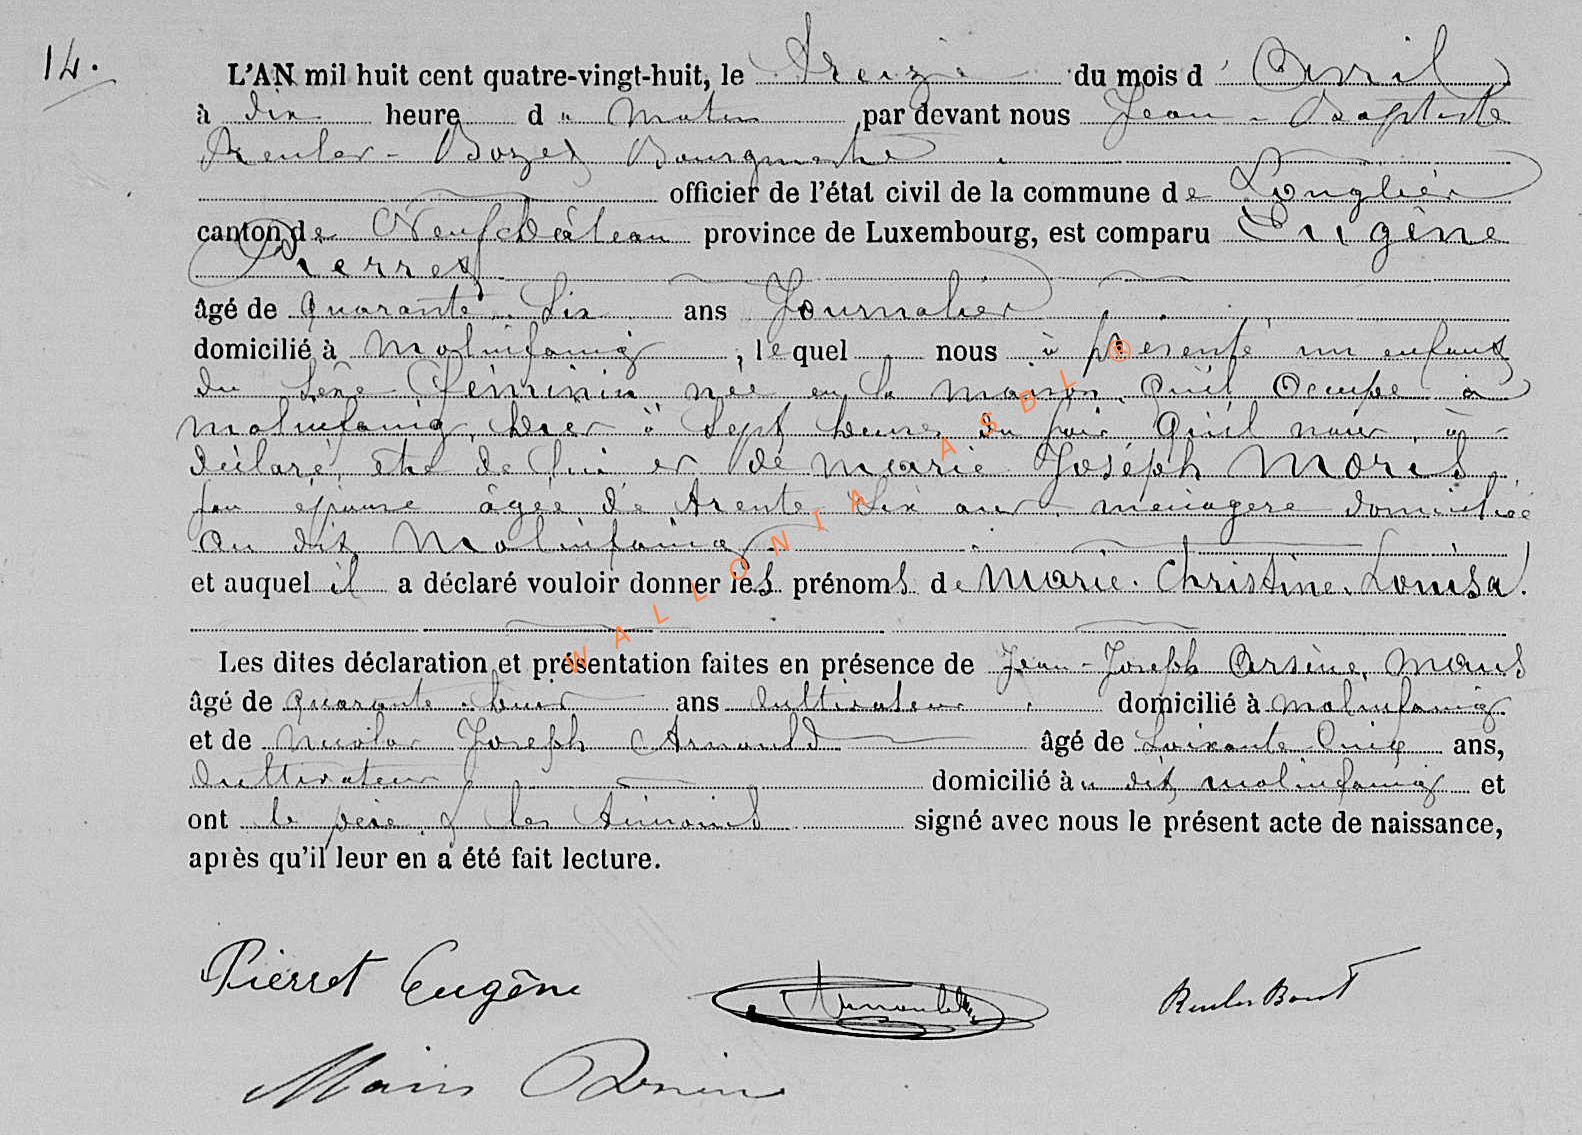 14.
L'AN mil huit cent quatre-vingt-huit, le Treize du mois d'Avril
à dix heure du Matin par devant nous Jean-Baptiste
Reuler-Bozet Bourgmestre
officier de l'état civil de la commune de Longlier
canton de Neufchâteau province de Luxembourg, est comparu Eugène
Pierret
âgé de Quarante Six ans Journalier
domicilié à Molinfaing, lequel nous à présenté un enfant
du sexe féminin née en la maison qu'il occupe à
Molinfaing, hier à Sept heures du soir qu'il nous à
déclaré être de lui et de Marie Joseph Moris
son épouse âgée de trente Six ans ménagère domiciliée
au dit Molinfaing
et auquel il a déclaré vouloir donner les prénoms de Marie. Christine. Louisa!
Les dites déclaration et présentation faites en présence de Jean-Joseph Arsène,
âgé de Quarante huit ans Cultivateur domicilié à Molinfaing
et de Nicolas Joseph Arnould âgé de Soixante Cinq ans,
Cultivateur domicilié au dit Molinfaing et
ont le père & les témoins signé avec nous le présent acte de naissance,
après qu'il leur en a été fait lecture.
Pierret Eugène
Arnould
WALLONIA ASBL ®